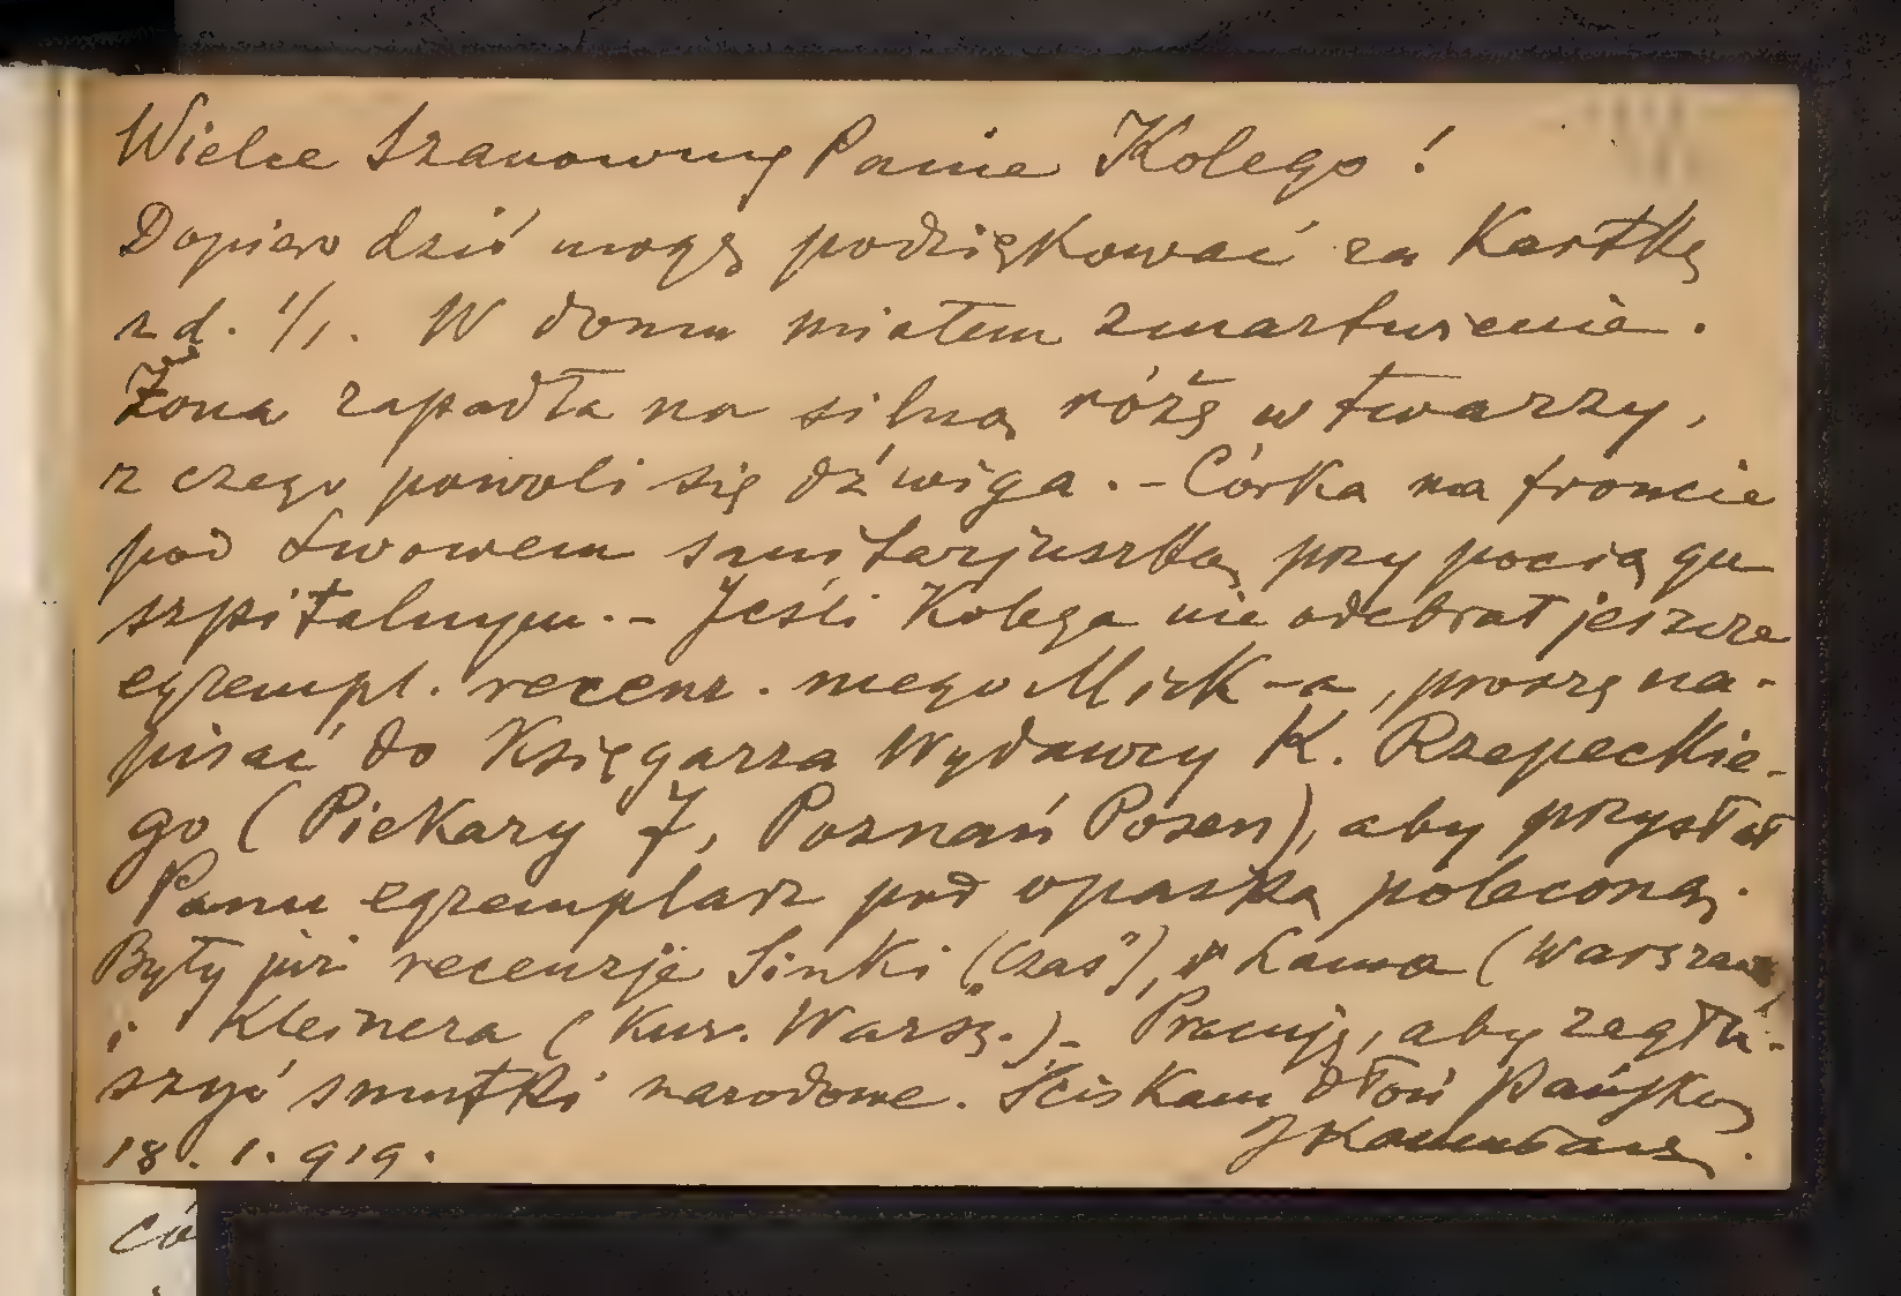 Wielce Szanowny Panie Kolego!
Dopiero dziś mogę podziękować za Kartkę
z d. 1/1. W domu miałem zmartwienie.
Żona zapadła na silną różę w twarzy,
z czego powoli się dźwiga. - Córka na froncie
pod Lwowem sanitarjuszką przy pociągu
szpitalnym. - Jeśli Kolega nie odebrał jeszcze
egzempl. recenz. mego Mick-a, proszę na-
pisać do Księgarza Wydawcy K. Rzepeckie-
go (Piekary 7, Poznań Posen), aby przysłał
Panu egzemplarz pod opaską poleconą.
Były już recenzje Sinki („Czas"), Lama (Warszawa)
i Kleinera (Kur. Warsz.) - Pracuję, aby zagłu-
szyć smutki narodowe. Ściskam dłoń Pańską
18. 1. 919.
JKallenbach.
Có